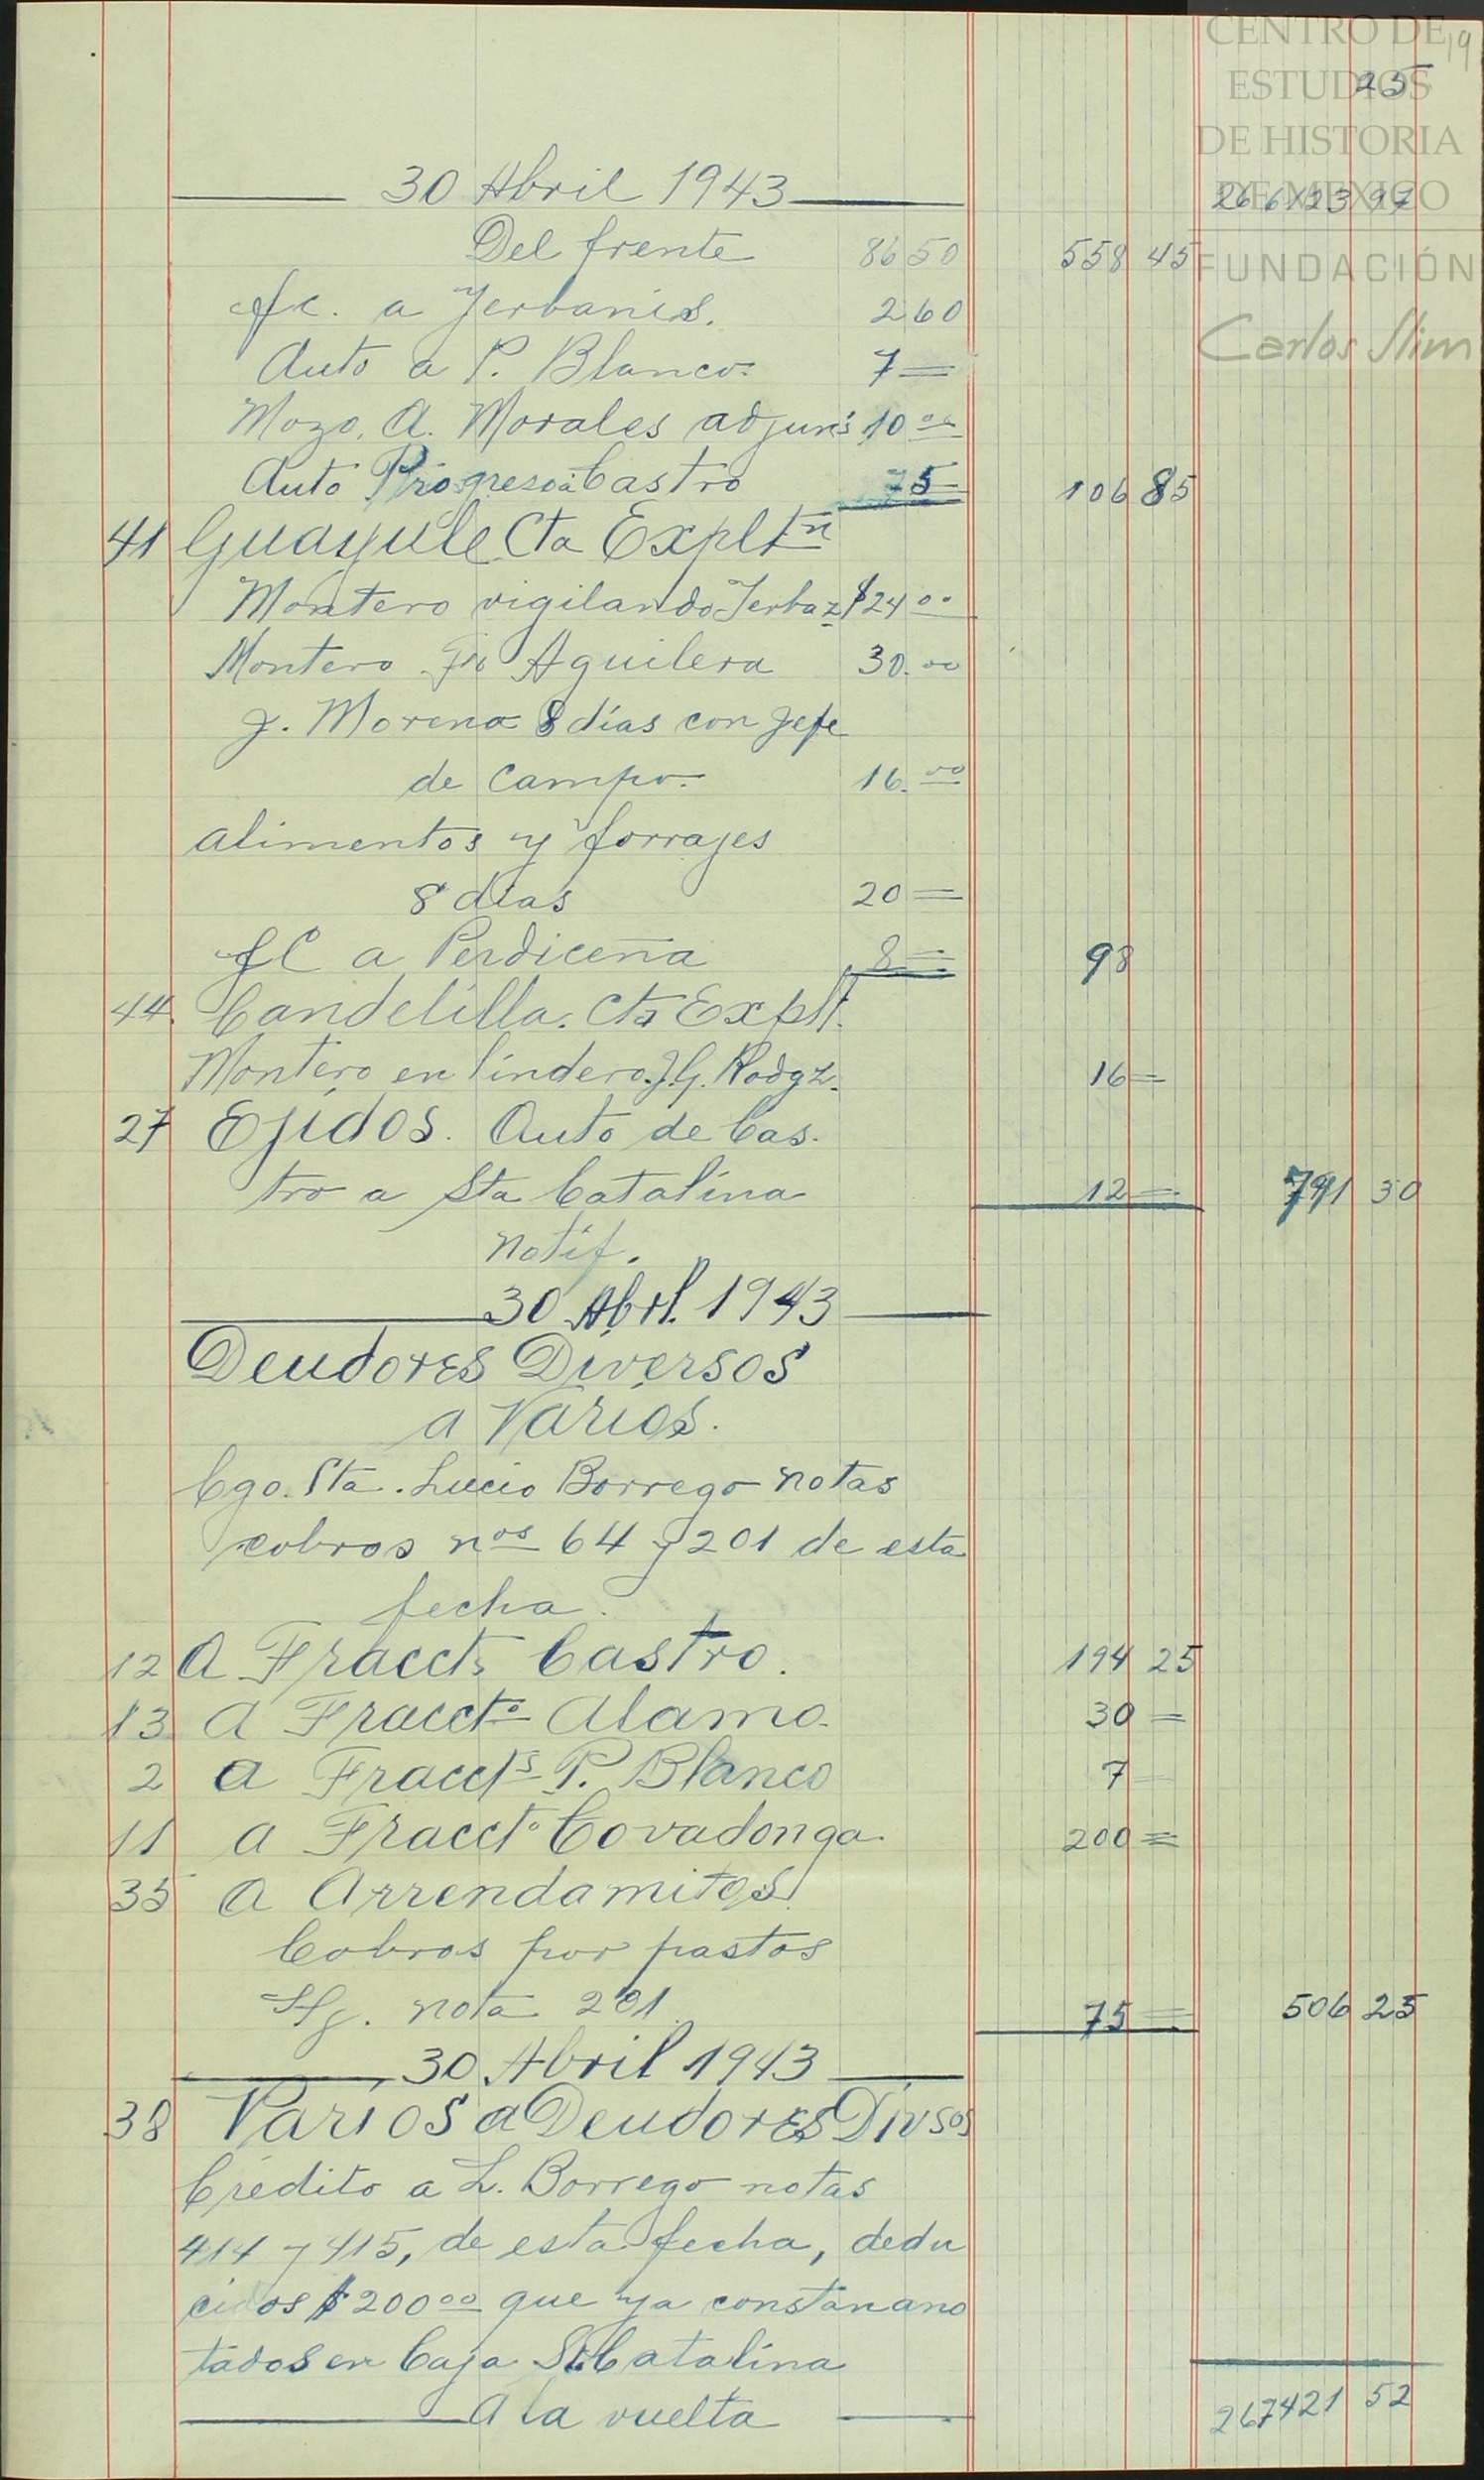 CENTRO DE
ESTUDIOS
DE HISTORIA
DE MEXICO
FUNDACIÓN
Carlos Slim
19
25
30 Abril 1943 266123 97
Del frente 86 50 558 45
fc. a Yerbanis. 2 60
Auto a P. Blanco. 7 =
Mozo. A. Morales adjuns 10 00
Auto Progreso a Castro 75 106 85
41 Guayule Cta Expltn
Montero vigilando Yerbaz $24 00
Montero Fo Aguilera 30. 00
J. Moreno 8 días con Jefe
de Campo. 16. 00
alimentos y forrajes
8 días 20 =
fC a Perdiceña 8 = 98
44. Candelilla. Cta Explt.
Montero en lindero. J.G. Rodgz. 16 =
27 Ejidos. Auto de Cas-
tro a Sta Catalina 12 = 791 30
Notif.
30 Abrl. 1943
Deudores Diversos
a Varios.
Cgo. Sta. Lucio Borrego notas
cobros nos 64 y 201 de esta
fecha.
12 A Fraccts Castro. 194 25
13 A Fraccto Alamo. 30 =
2 a Fraccts P. Blanco 7 =
11 a Fraccto Covadonga. 200 =
35 a Arrendamitos
Cobros por pastos
Sg. nota 201 75 = 506 25
30 Abril 1943
38 Varios a Deudores Divsos
Crédito a L. Borrego notas
414 y 415, de esta fecha, dedu
cidos $200 00 que ya constan ano
tados en Caja Sta Catalina
A la vuelta 267421 52